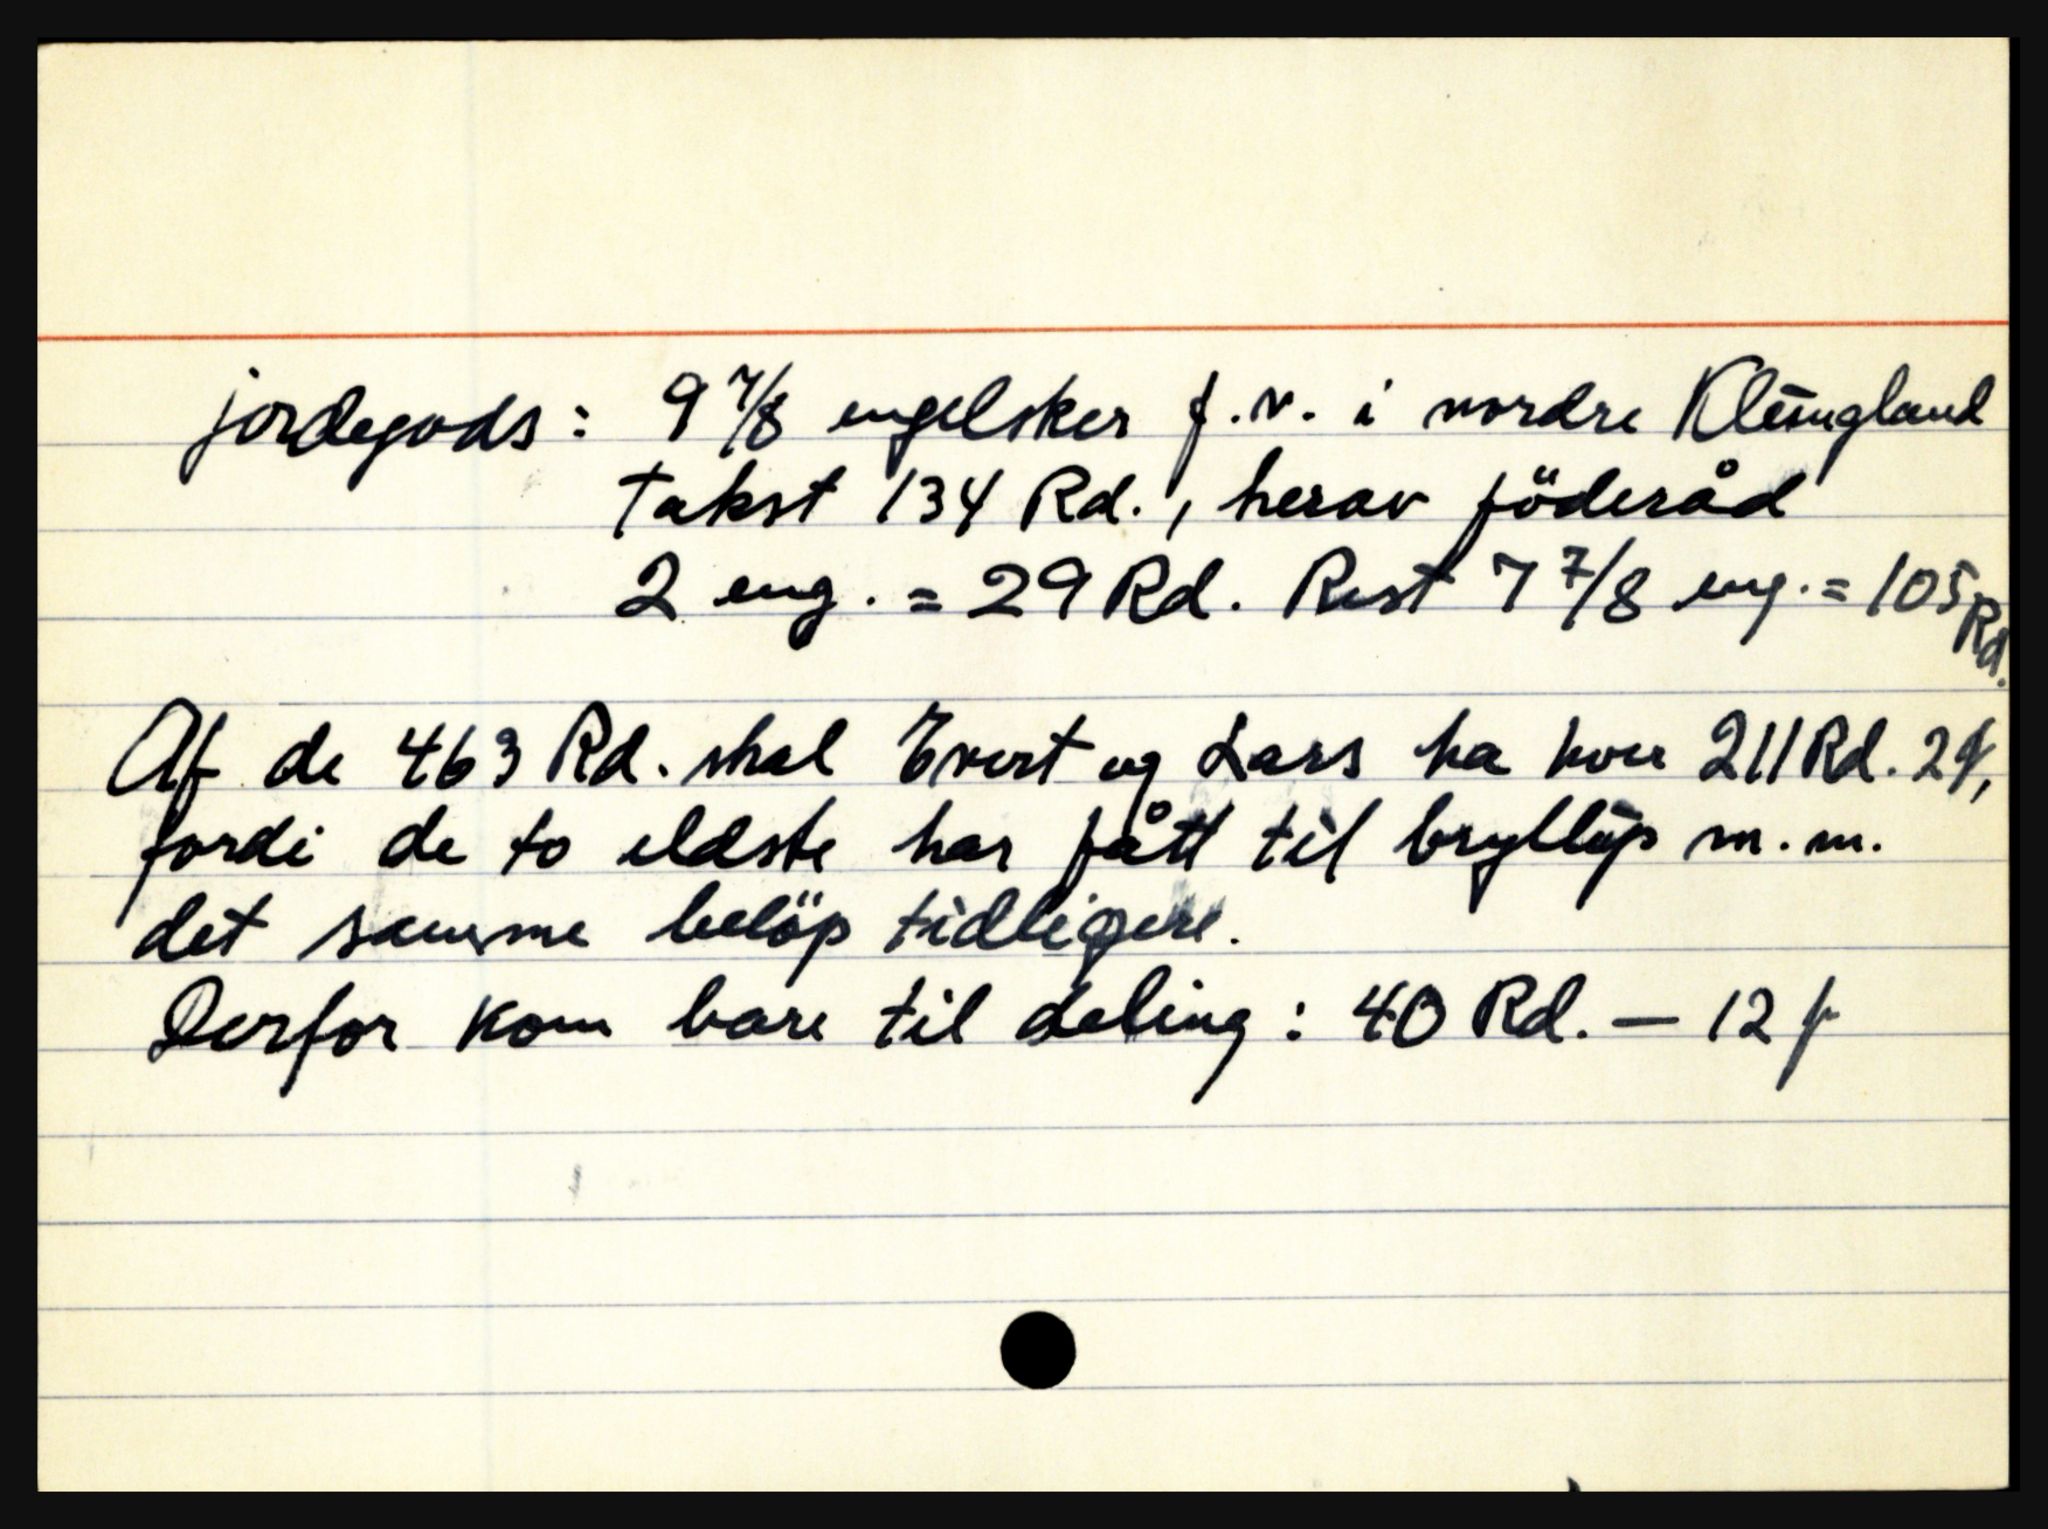 jordegods: 9 7/8 engelsker f.v. i nordre Kleivgland
takst 134 Rd., herav föderåd
2 eng. = 29 Rd. Rest 7 7/8 eng. = 105 Rd.
Af de 463 Rd. skal Evert og Lars ha hver 211 Rd. 2
fordi de to eldste har fått til bryllup m.m.
det samme belöp tidligere.
Derfor kom bare til deling: 40 Rd. — 12